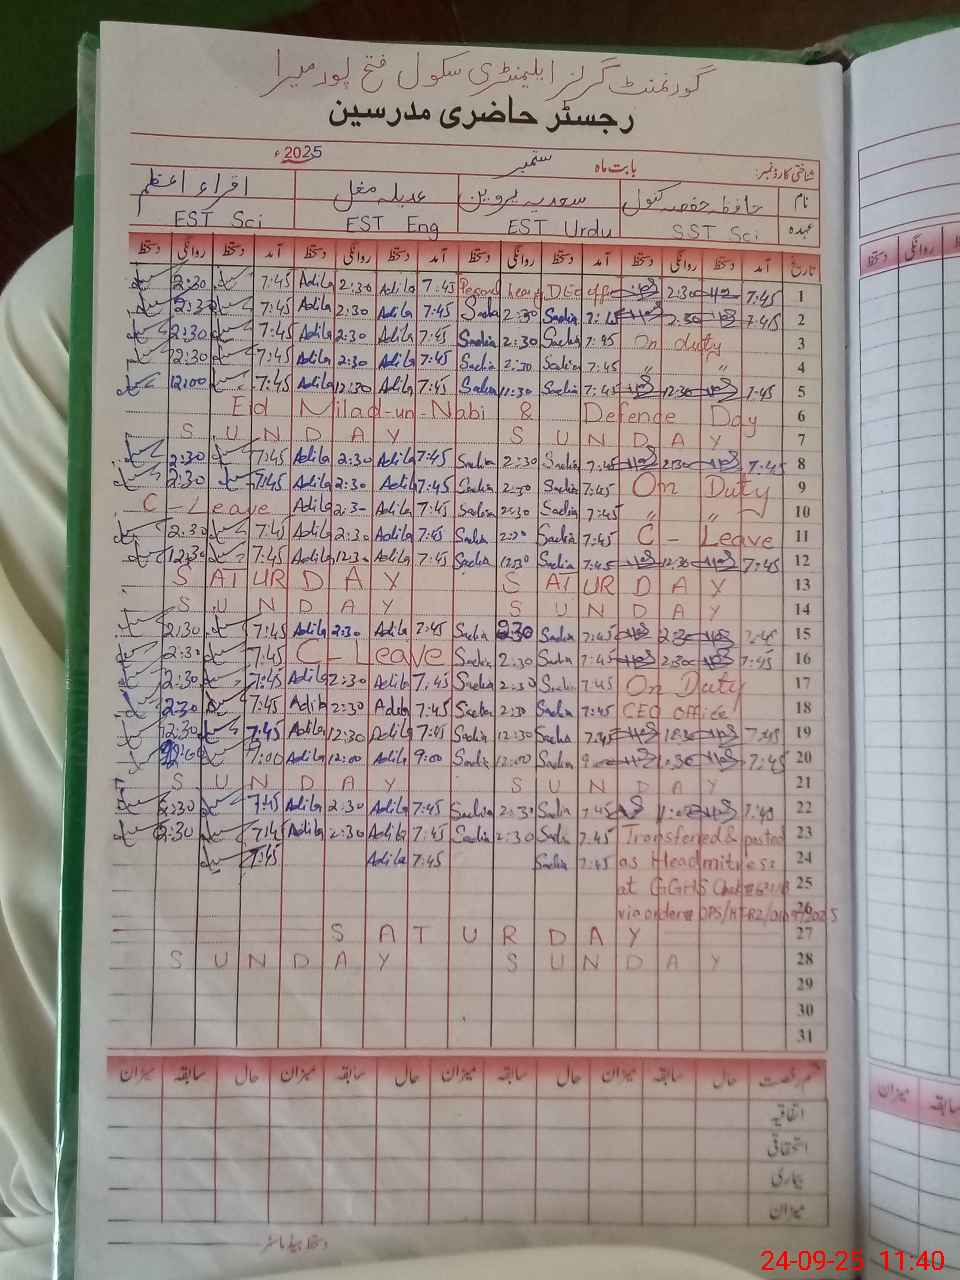 گورنمنٹ گرلز ایلیمنٹری سکول فتح پور میرا
رجسٹر حاضری مدرسین
شناختی کارڈ نمبر: بابت ماہ ستمبر 2025ء
نام حافظہ حفصہ کنول سعدیہ پروین عدیلہ مغل اقراء اعظم
عہدہ SST Sci EST Urdu EST Eng EST Sci
تاریخ آمد دستخط روانگی دستخط آمد دستخط روانگی دستخط آمد دستخط روانگی دستخط آمد دستخط روانگی دستخط
1 7:45 2:30 DEO 7:45 Adila 2:30 Adila 7:45 2:30
2 7:45 2:30 Sadia 2:30 Sadia 7:45 Adila 2:30 Adila 7:45 2:30
3 On duty 7:45 Sadia 2:30 Sadia 7:45 Adila 2:30 Adila 7:45 2:30
4 " " 7:45 Sadia 2:30 Sadia 7:45 Adila 2:30 Adila 7:45 2:30
5 7:45 12:30 7:45 Sadia Sadia 7:45 Adila 12:30 Adila 7:45 12:00
6 Eid Milad-un-Nabi & Defence Day
7 SUNDAY SUNDAY
8 7:45 2:30 7:45 Sadia 2:30 Sadia 7:45 Adila 2:30 Adila 7:45 2:30
9 On Duty 7:45 Sadia 2:30 Sadia 7:45 Adila 2:30 Adila 7:45 2:30
10 " " 7:45 Sadia 2:30 Sadia 7:45 Adila Adila C-Leave
11 C-Leave 7:45 Sadia Sadia 7:45 Adila 2:30 Adila 7:45 2:30
12 7:45 12:30 7:45 Sadia 12:30 Sadia 7:45 Adila 12:30 Adila 7:45 12:30
13 SATURDAY SATURDAY
14 SUNDAY SUNDAY
15 2:30 7:45 Sadia 2:30 Sadia 7:45 Adila 2:30 Adila 7:45 2:30
16 7:45 2:30 7:45 Sadia 2:30 Sadia C-Leave 7:45 2:30
17 On Duty 7:45 Sadia 2:30 Sadia 7:45 Adila 2:30 Adila 7:45 2:30
18 CEO office 7:45 Sadia 2:30 Sadia 7:45 Adila 2:30 Adila 7:45 2:30
19 7:45 7:45 Sadia 12:30 Sadia 7:45 Adila 12:30 Adila 7:45 12:30
20 7:45 Sadia 12:00 Sadia 9:00 Adila 12:00 Adila 9:00
21 SUNDAY SUNDAY
22 7:45 Sadia 2:30 Sadia 7:45 Adila 2:30 Adila 7:45 2:30
23 Transferred & posted 7:45 Sadia 2:30 Sadia 7:45 Adila 2:30 Adila 7:45 2:30
24 as Headmitress 7:45 Sadia 7:45 Adila 7:45
25 at GGHS
26 via order#
27 SATURDAY
28 SUNDAY SUNDAY
29
30
31
قسم رخصت حال سابقہ میزان حال سابقہ میزان حال سابقہ میزان حال سابقہ میزان
اتفاقیہ
استحقاقی
بیماری
میزان
دستخط ہیڈ ماسٹر
24-09-25 11:40